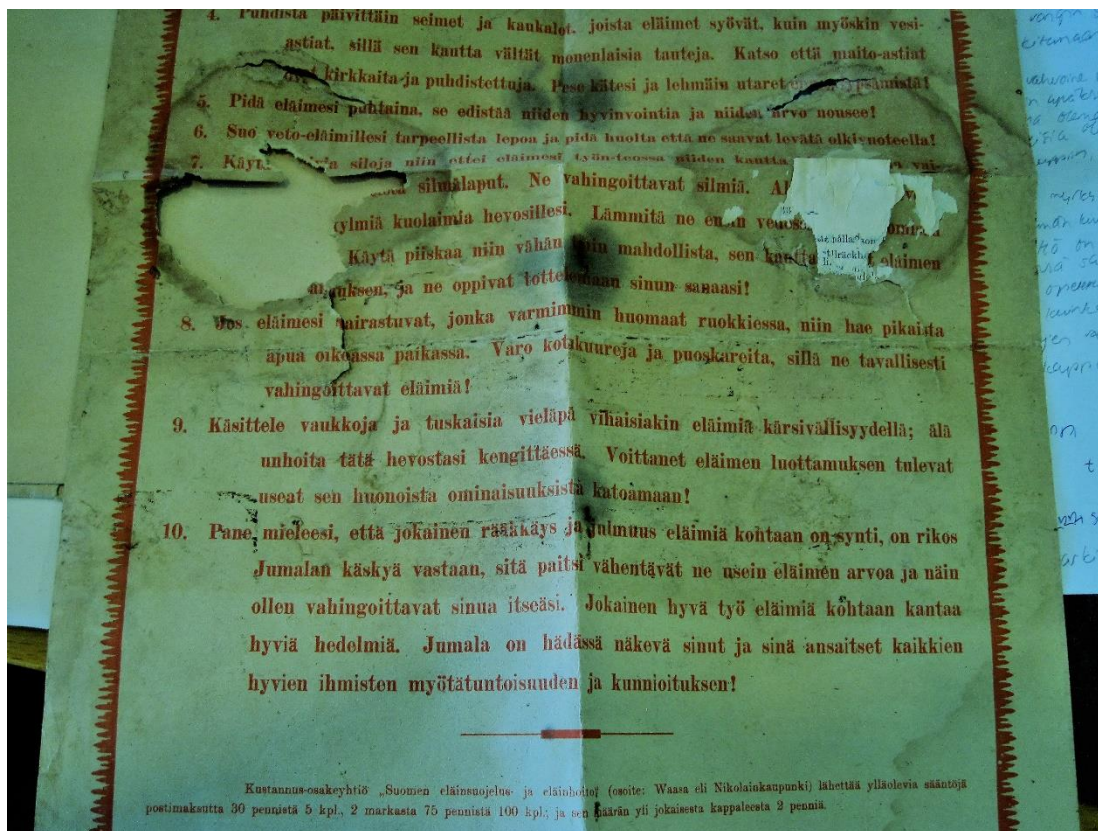 4. Puhdista päivittäin seimet ja kaukalot, joista eläimet syövät, kuin myöskin vesi-
astiat, sillä sen kautta vältät monenlaisia tauteja. Katso että maito-astiat
kirkkaita ja puhdistettuja. Pese kätesi ja lehmäin utaret
5. Pidä eläimesi puhtaina, se edistää niiden hyvinvointia ja niiden arvo nousee!
6. Suo veto-eläimillesi tarpeellista lepoa ja pidä huolta että ne saavat levätä olkivuoteella!
7. siloja niin ettei eläimesi työn-teossa niiden kautta
silmälaput. Ne vahingoittavat silmiä.
kylmiä kuolaimia hevosillesi. Lämmitä ne
Käytä piiskaa niin vähän kuin mahdollista, sen kautta eläimen
ja ne oppivat tottelemaan sinun sanaasi!
8. Jos eläimesi sairastuvat, jonka varmimmin huomaat ruokkiessa, niin hae pikaista
apua oikeassa paikassa. Varo kotikuureja ja puoskareita, sillä ne tavallisesti
vahingoittavat eläimiä!
9. Käsittele vaukkoja ja tuskaisia vieläpä vihaisiakin eläimiä kärsivällisyydellä; älä
unhoita tätä hevostasi kengittäessä. Voittanet eläimen luottamuksen tulevat
useat sen huonoista ominaisuuksista katoamaan!
10. Pane mieleesi, että jokainen rääkkäys ja julmuus eläimiä kohtaan on synti, on rikos
Jumalan käskyä vastaan, sitä paitsi vähentävät ne usein eläimen arvoa ja näin
ollen vahingoittavat sinua itseäsi. Jokainen hyvä työ eläimiä kohtaan kantaa
hyviä hedelmiä. Jumala on hädässä näkevä sinut ja sinä ansaitset kaikkien
hyvien ihmisten myötätuntoisuuden ja kunnioituksen!
Kustannus-osakeyhtiö „Suomen eläinsuojelus- ja eläinhoito" (osoite: Waasa eli Nikolainkaupunki) lähettää ylläolevia sääntöjä
postimaksutta 30 pennistä 5 kpl., 2 markasta 75 pennistä 100 kpl.; ja sen määrän yli jokaisesta kappaleesta 2 penniä.